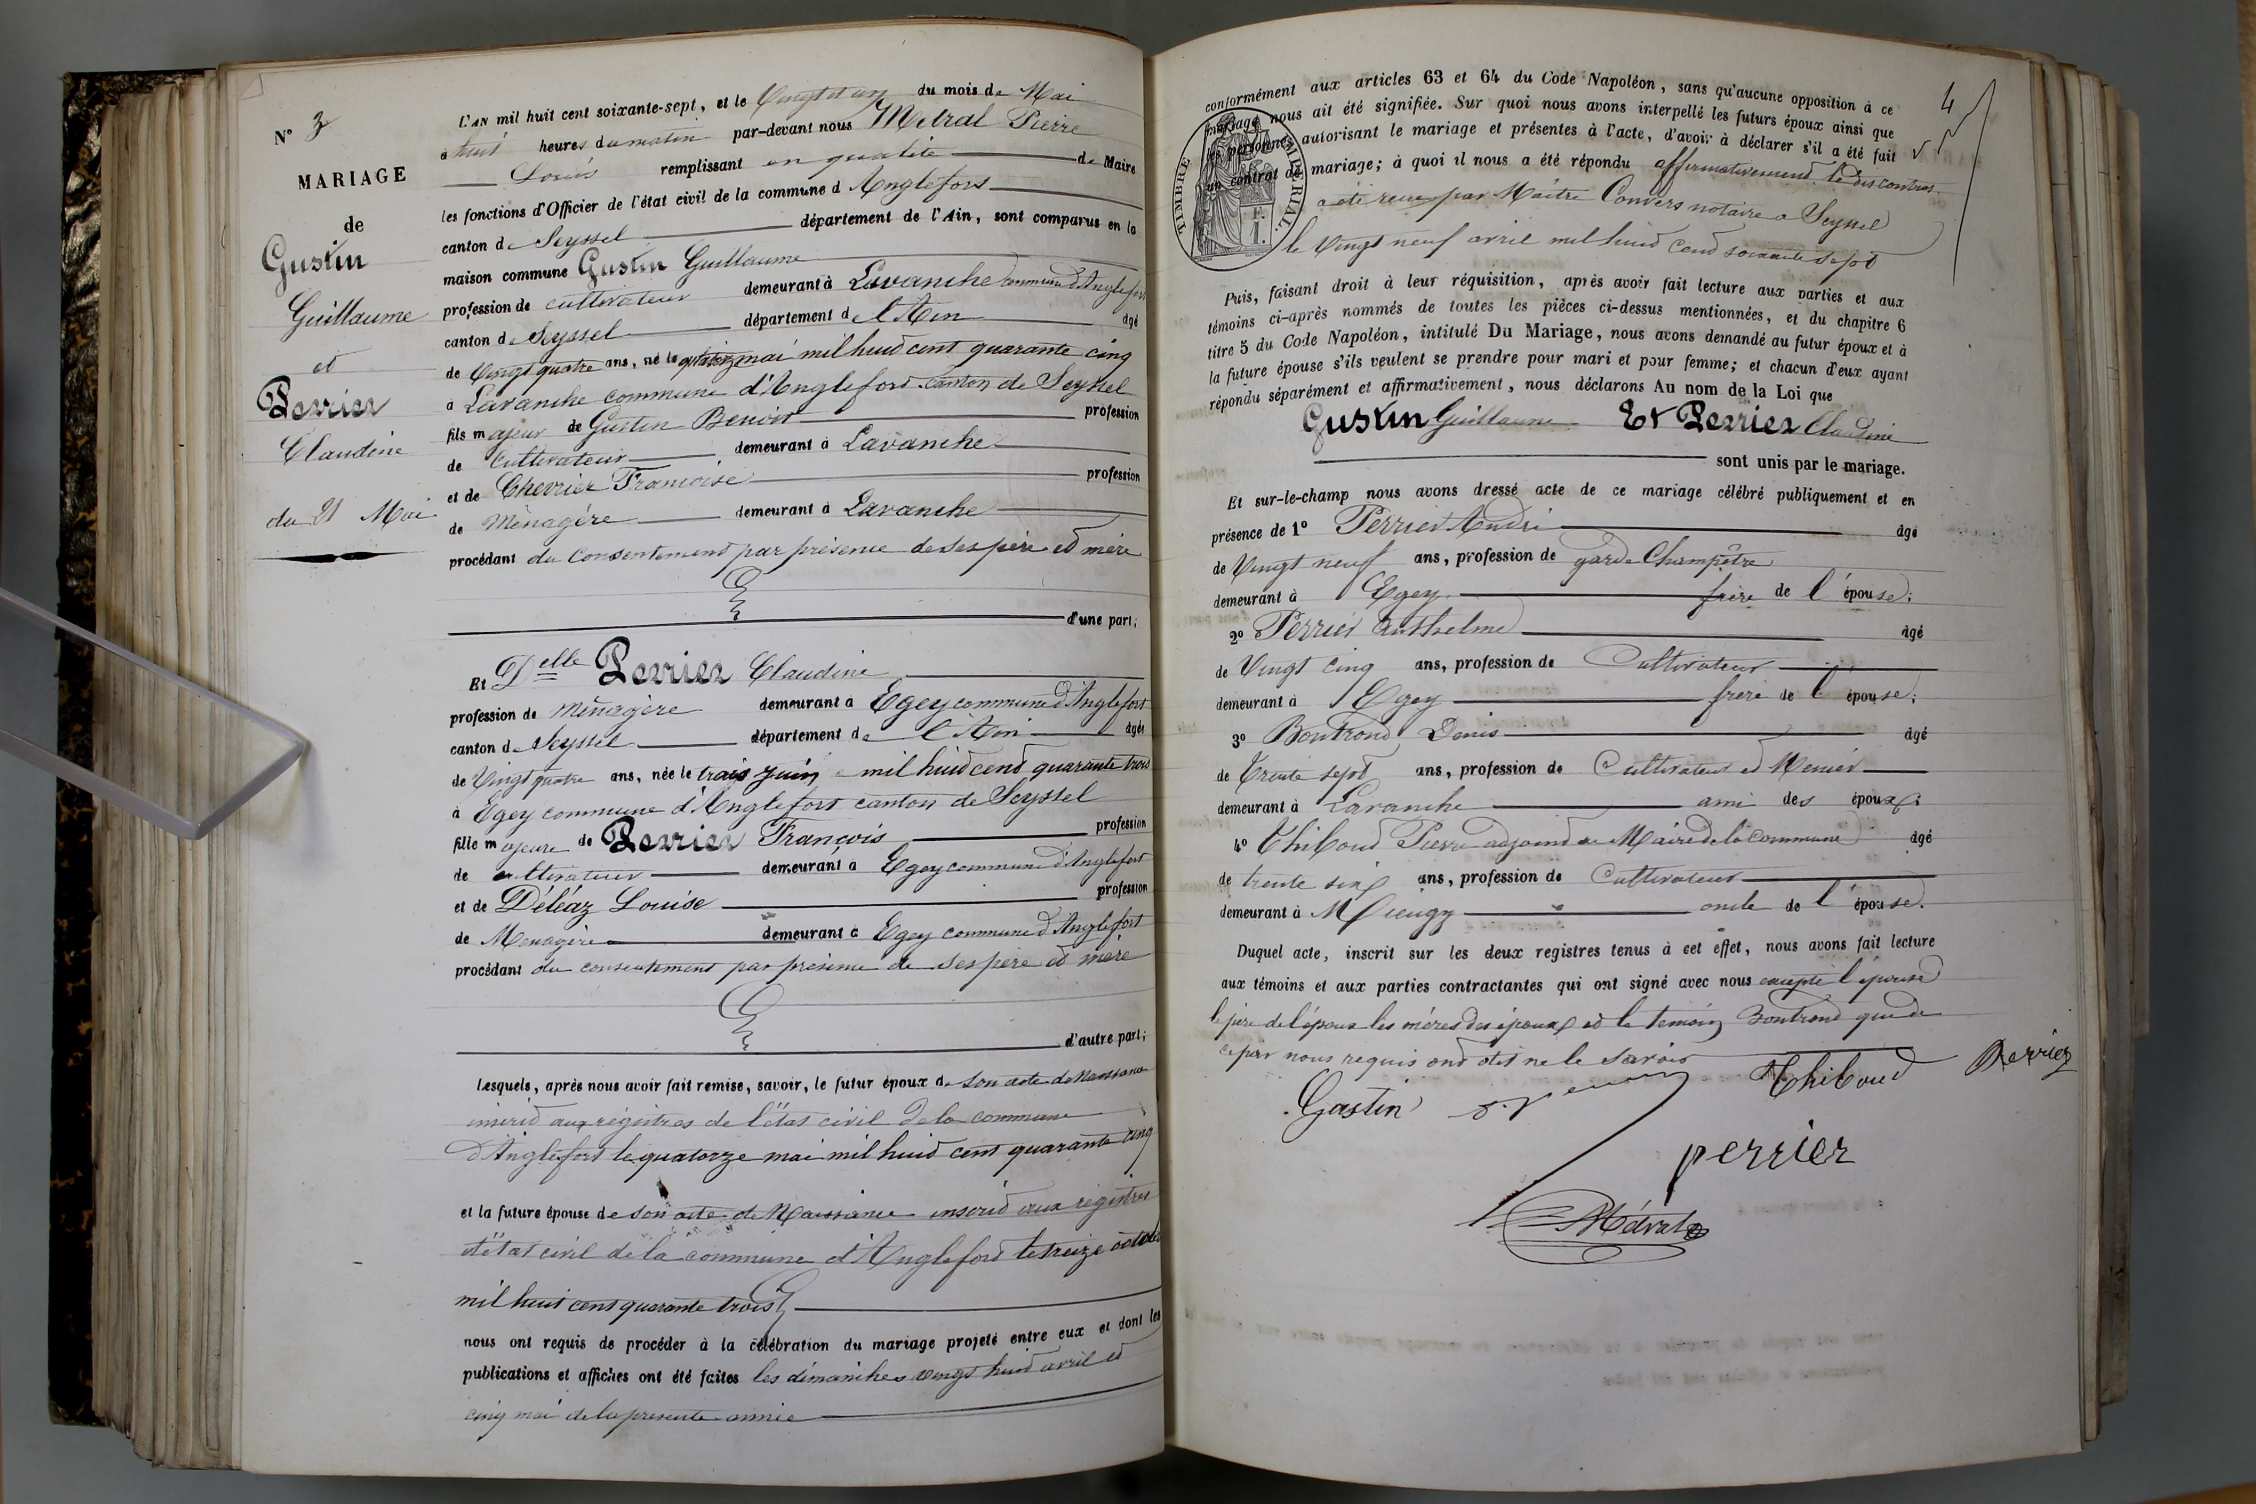 N° 3
MARIAGE
de
Gustin
Guillaume
et
Perrier
Claudine
du 21 Mai
L'AN mil huit cent soixante-sept, et le Vingt et un du mois de Mai
à huit heures du matin par-devant nous Métral Pierre
Louis remplissant en qualité de Maire
les fonctions d'Officier de l'état civil de la commune d Anglefort
canton de Seyssel département de l'Ain, sont comparus en la
maison commune Gustin Guillaume
profession de cultivateur demeurant à Lavanche commune d'Anglefort
canton de Seyssel département de l'Ain âgé
de Vingt quatre ans, né le mai mil huit cent quarante cinq
à Lavanche commune d'Anglefort canton de Seyssel
fils majeur de Gustin Benoit profession
de Cultivateur demeurant à Lavanche
et de Chevrier Francoise profession
de Ménagére demeurant à Lavanche
procédant du consentement par présence de ses père et mére
d'une part;
Et Delle Perrier Claudine
profession de ménagère demeurant à Egey commune d'Anglefort
canton de Seyssel département de l'Ain âgée
de Vingt quatre ans, née le trois juin mil huit cent quarante trois
à Egey commune d'Anglefort canton de Seyssel
fille majeure de Perrier François profession
de cultivateur demeurant à Egey commune d'Anglefort
et de Déléaz Louise profession
de Menagère demeurant à Egey commune d'Anglefort
procédant du consentement par présence de ses père et mère
d'autre part;
Lesquels, après nous avoir fait remise, savoir, le futur époux de son acte de Naissance
inscrit aux régistres de l'état civil de la commune
d'Anglefort le quatorze mai mil huit cent quarante cinq
et la future épouse de son acte de Naissance inscrit aux régistres
d'état civil de la commune d'Anglefort le treize octobre
mil huit cent quarante trois
nous ont requis de procéder à la célébration du mariage projeté entre eux et dont les
publications et affiches ont été faites les dimanches vingt huit avril et
cinq mai de la presente année
4
conformément aux articles 63 et 64 du Code Napoléon, sans qu'aucune opposition à ce
mariage nous ait été signifiée. Sur quoi nous avons interpellé les futurs époux ainsi que
les personnes autorisant le mariage et présentes à l'acte, d'avoir à déclarer s'il a été fait
un contrat de mariage; à quoi il nous a été répondu affirmativement le dis contrat
TIMBRE IMPÉRIAL.
a été reçu par Maitre Convers notaire a Seyssel
le Vingt neuf avril mil huit cent soixante sept
Puis, faisant droit à leur réquisition, après avoir fait lecture aux parties et aux
témoins ci-après nommés de toutes les pièces ci-dessus mentionnées, et du chapitre 6
titre 5 du Code Napoléon, intitulé Du Mariage, nous avons demandé au futur époux et à
la future épouse s'ils veulent se prendre pour mari et pour femme; et chacun d'eux ayant
répondu séparément et affirmativement, nous déclarons Au nom de la Loi que
Gustin Guillaume Et Perrier Claudine
sont unis par le mariage.
Et sur-le-champ nous avons dressé acte de ce mariage célébré publiquement et en
présence de 1° Perrier André âgé
de Vingt neuf ans, profession de garde Champêtre
demeurant à Egey frère de l'épouse;
2° Perrier Anthelme âgé
de Vingt cinq ans, profession de Cultivateur
demeurant à Egey frère de l'épouse;
3° Bontrond Denis âgé
de Trente sept ans, profession de Cultivateur et
demeurant à Lavanche ami des époux;
4° Thiboud Pierre adjoint au Maire de la commune âgé
de trente six ans, profession de Cultivateur
demeurant à oncle de l'épouse.
Duquel acte, inscrit sur les deux registres tenus à cet effet, nous avons fait lecture
aux témoins et aux parties contractantes qui ont signé avec nous excepté l'épouse
le père de l'époux les mères des époux et le temoin Bontrond que de
ce par nous requis ont dit ne le savoir
Gustin Thiboud Perrier
perrier
Métral